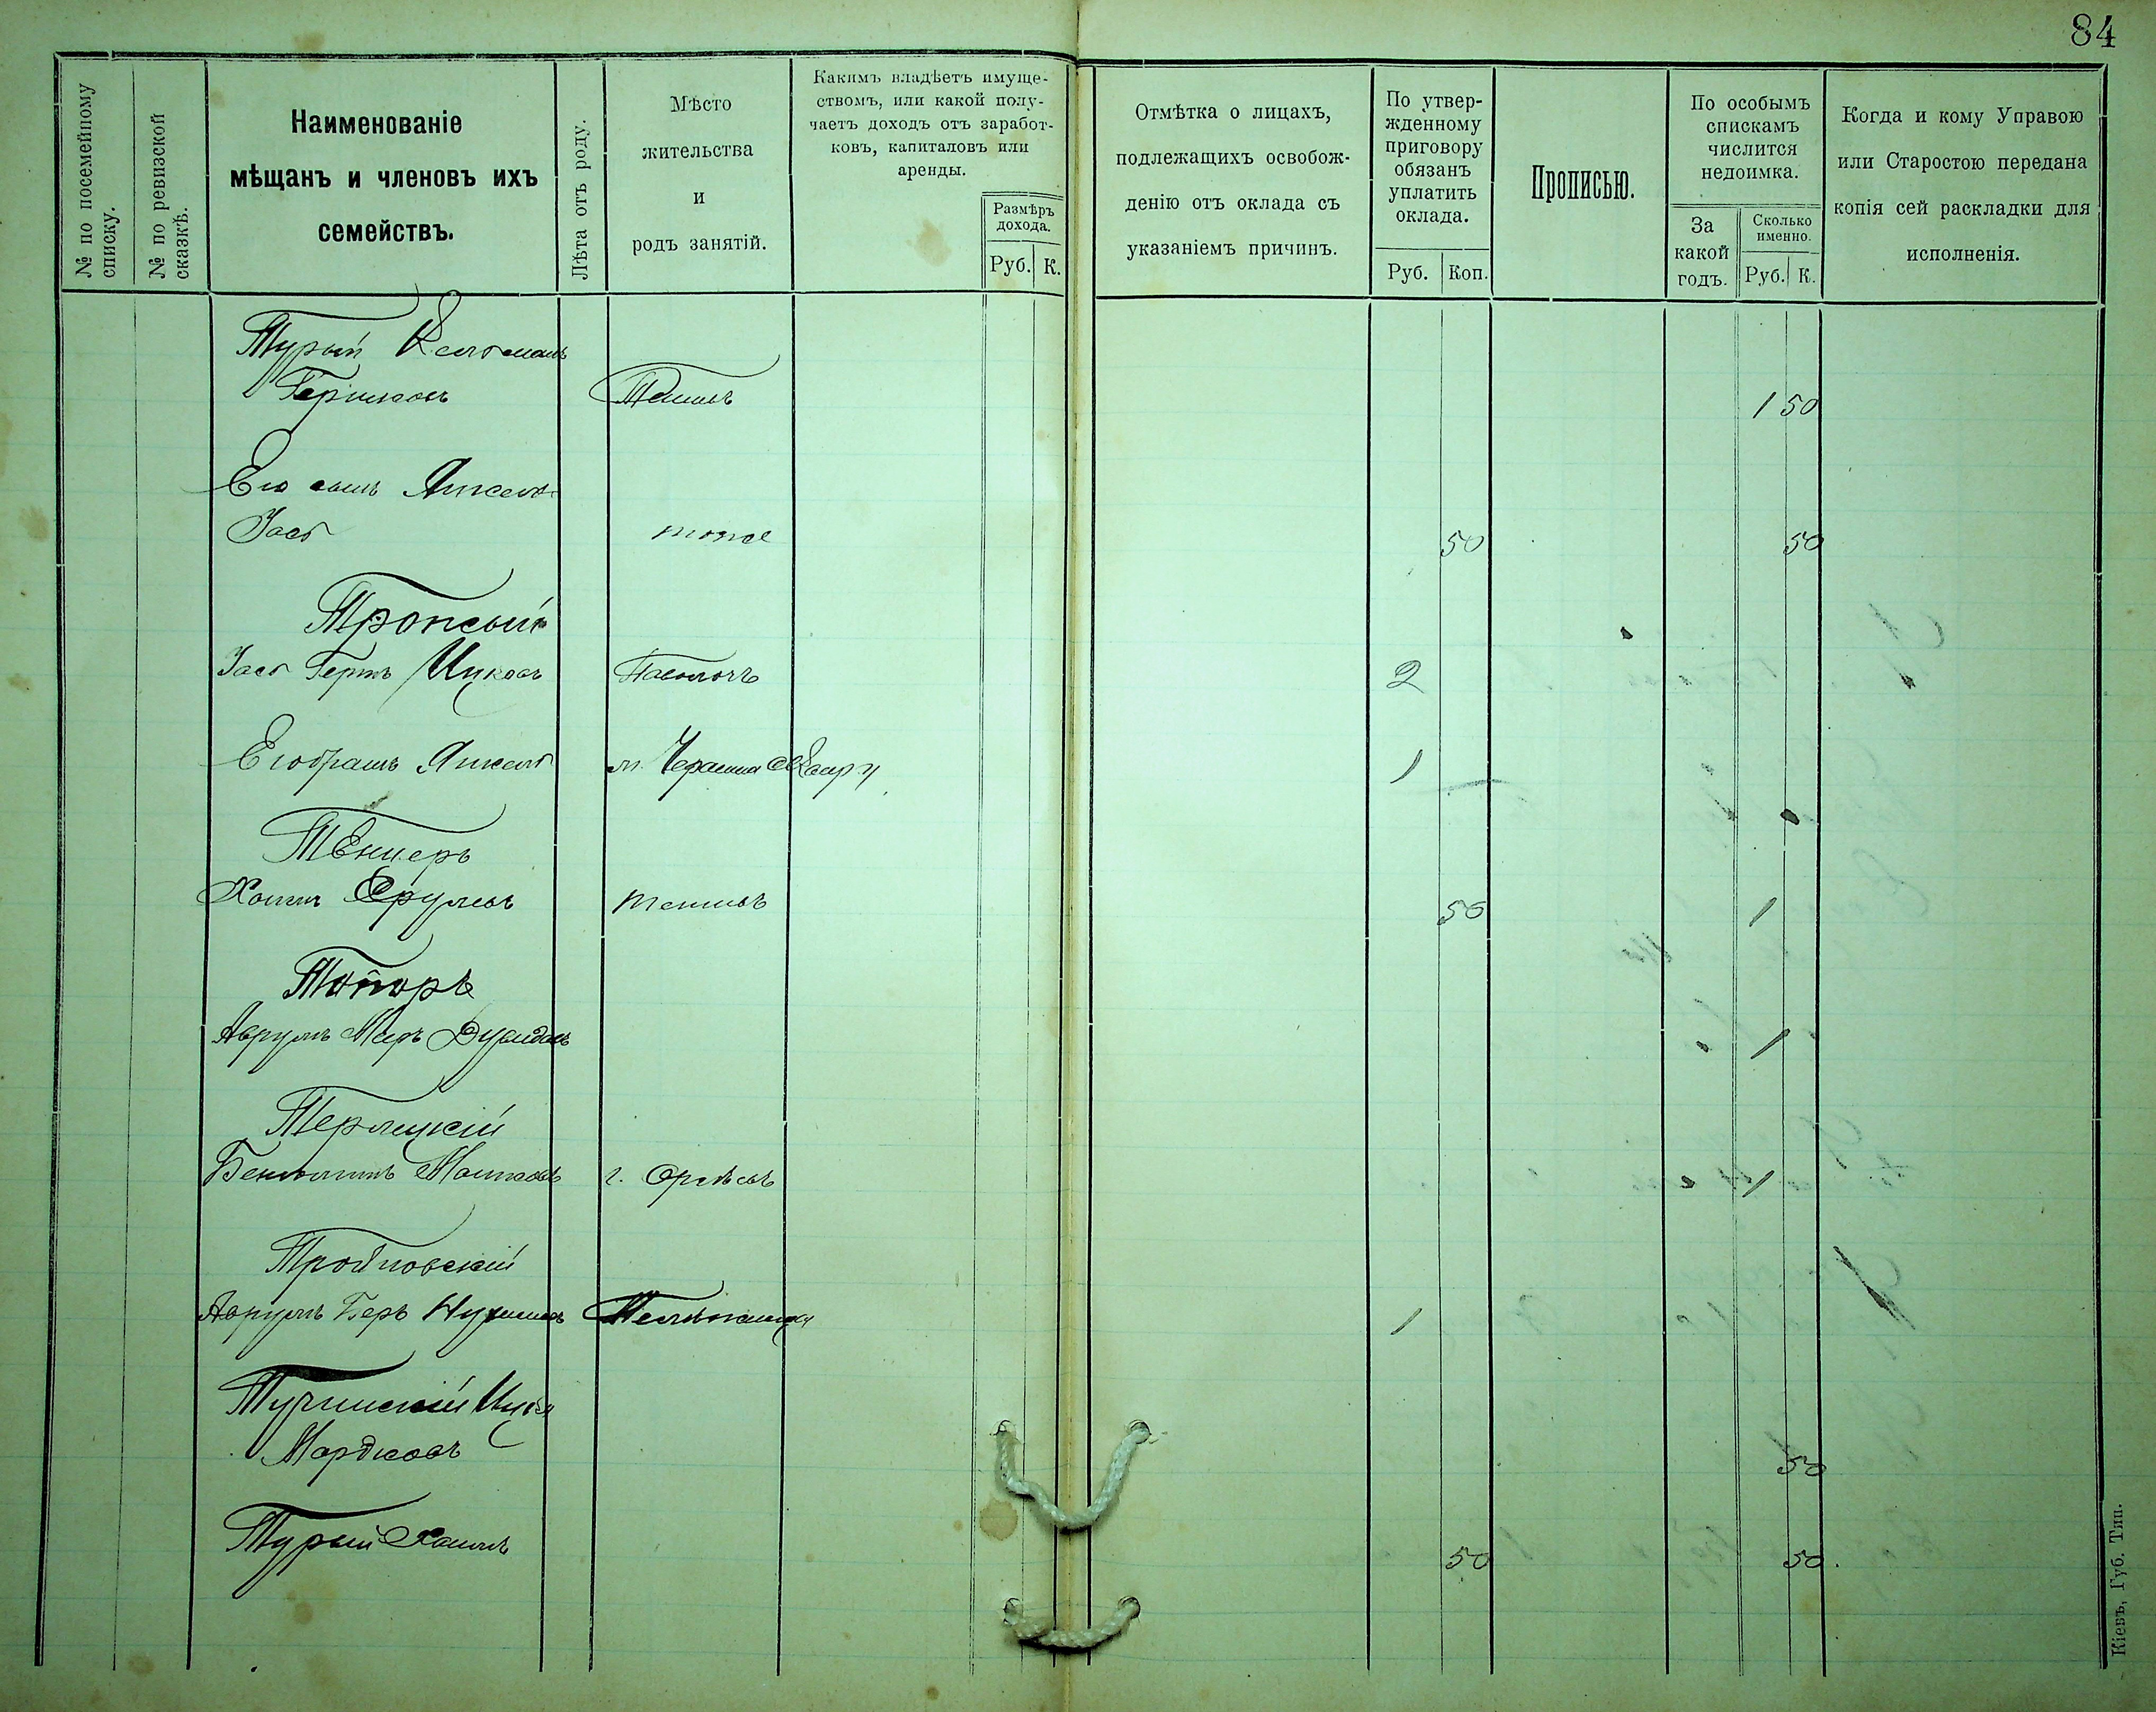 84
№ по посемейному
списку.
№ по ревизской
сказкѣ.
Наименованіе
мѣщанъ и членовъ ихъ
семействъ.
Лѣта отъ роду.
Мѣсто
жительства
и
родъ занятій.
Какимъ владѣетъ имуще-
ствомъ, или какой полу-
чаетъ доходъ отъ заработ-
ковъ, капиталовъ или
аренды.
Размѣръ
дохода.
Руб. К.
Отмѣтка о лицахъ,
подлежащихъ освобож-
денію отъ оклада съ
указаніемъ причинъ.
По утвер-
жденному
приговору
обязанъ
уплатить
оклада.
Руб. Коп.
Прописью.
По особымъ
спискамъ
числится
недоимка.
За
какой
годъ.
Сколько
именно.
Руб. К.
Когда и кому Управою
или Старостою передана
копія сей раскладки для
исполненія.
Турый
Гершков 1 50
Его сынъ Янкель
Іось тоже 50 50
Іось Гершъ Ицков Паволочь 2
Его братъ Янкель м. 1
Тенцеръ
Хаимъ Сруловъ 50 1
Топоръ
Аврумъ Меръ Дувидов 1
Терлецкій
Беньоминъ Мошковъ г. 1
Аврумъ Беръ 1
Тучинскій
Мордков 50
Турый Хаимъ 50 50
Кіевъ, Губ. Тип.